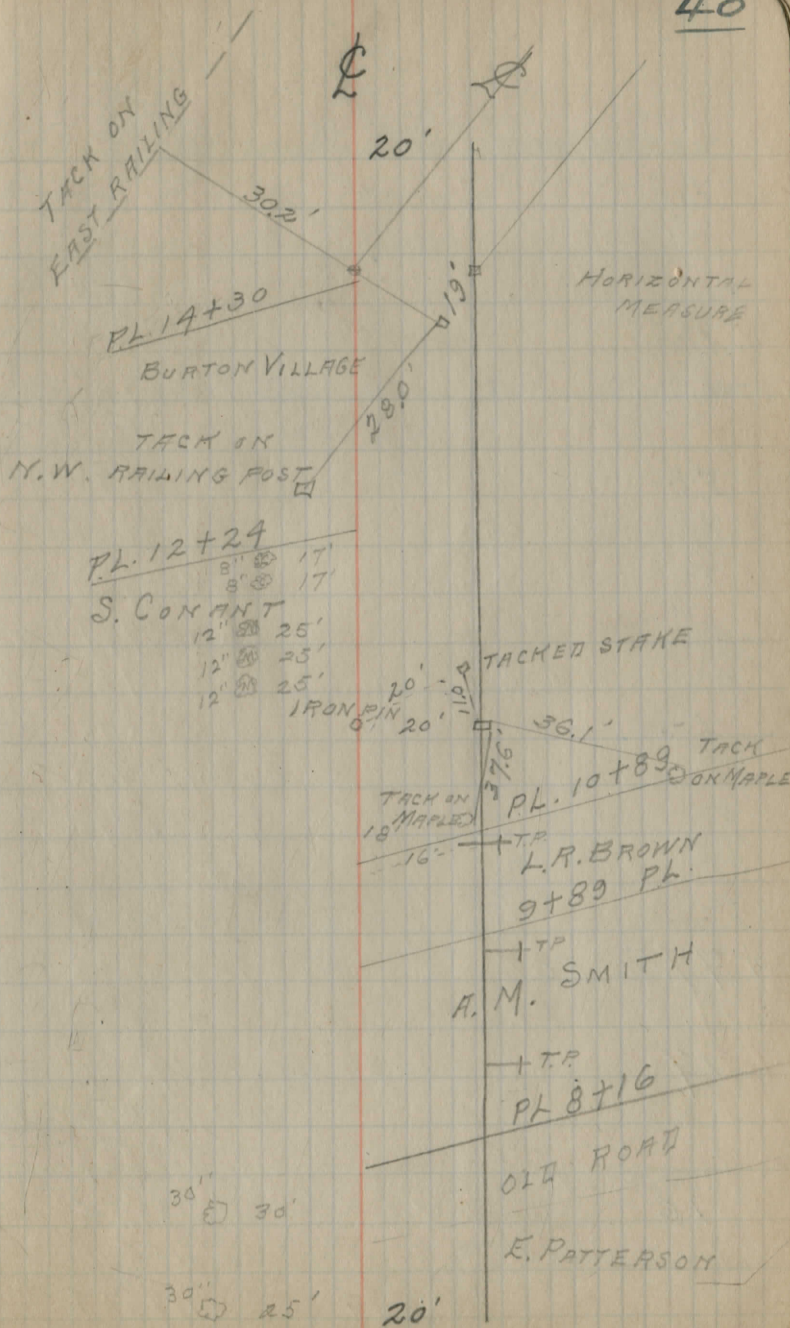 40
℄
℄
20'
TACK ON
EAST RAILING
30.2'
19'
HORIZONTAL
MEASURE
PL. 14+30
BURTON VILLAGE
28.0'
TACK ON
N.W. RAILING POST
PL. 12+24
8" 17'
8" 17'
S. CONANT
12" 25'
12" 25'
12" 25'
TACKED STAKE
20'
11.0'
IRON PIN
20'
36.1'
TACK
ON MAPLE
37.6'
PL. 10+89
TACK ON
MAPLE
18"
16'
T.P.
L.R. BROWN
9+89 PL.
T.P.
A. M. SMITH
T.P.
PL 8+16
OLD ROAD
30" 30'
E. PATTERSON
30" 25'
20'